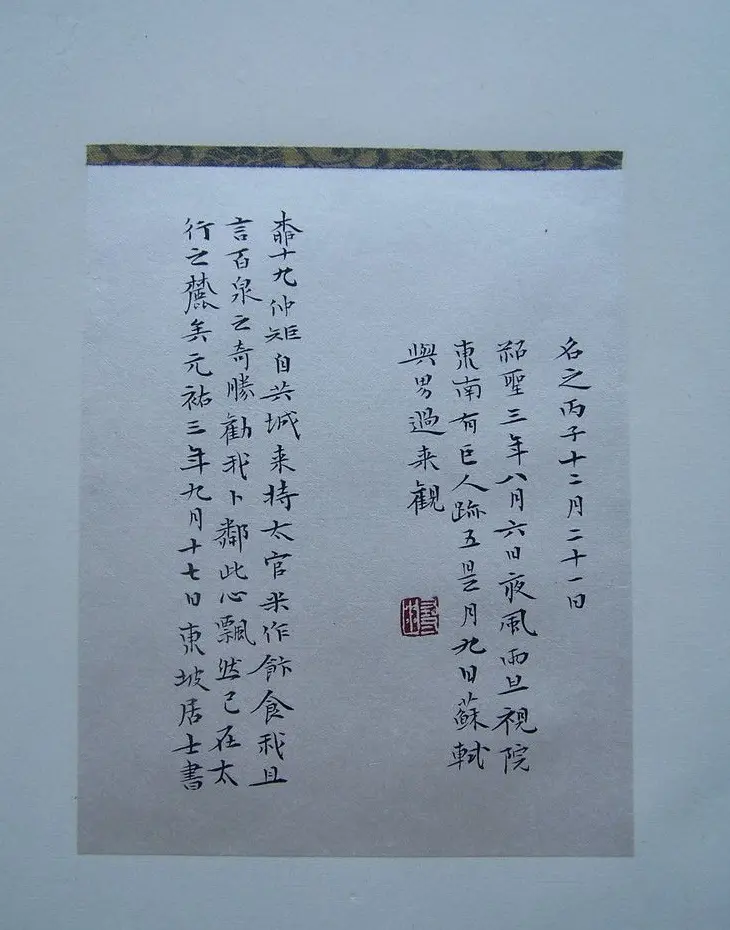 名之丙子十二月二十一日
紹聖三年八月六日夜風雨旦視院
東南有巨人跡五是月九日蘇軾
與男過来観
桺十九仲矩自共城来持太官米作飰食我且
言百泉之奇勝勸我卜鄰此心飄然已在太
行之麓矣元祐三年九月十七日東坡居士書